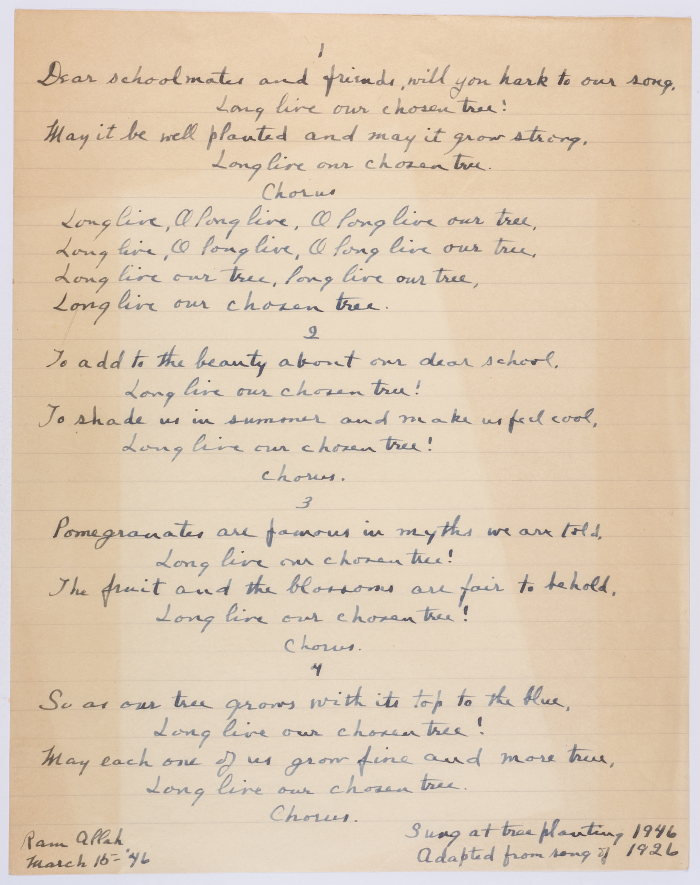 1
Dear schoolmates and friends, will you hark to our song,
Long live our chosen tree!
May it be well planted and may it grow strong,
Long live our chosen tree.
Chorus
Long live, O long live, O long live our tree,
Long live, O long live, O long live our tree,
Long live our tree, long live our tree,
Long live our chosen tree.
2
To add to the beauty about our dear school,
Long live our chosen tree!
To shade us in summer and make us feel cool,
Long live our chosen tree!
Chorus.
3
Pomegranates are famous in myths we are told,
Long live our chosen tree!
The fruit and the blossoms are fair to behold,
Long live our chosen tree!
Chorus.
4
So as our tree grows with its top to the blue,
Long live our chosen tree!
May each one of us grow fine and more true,
Long live our chosen tree.
Chorus.
Ram Allah
March 15-'46
Sung at tree planting 1946
Adapted from song of 1926